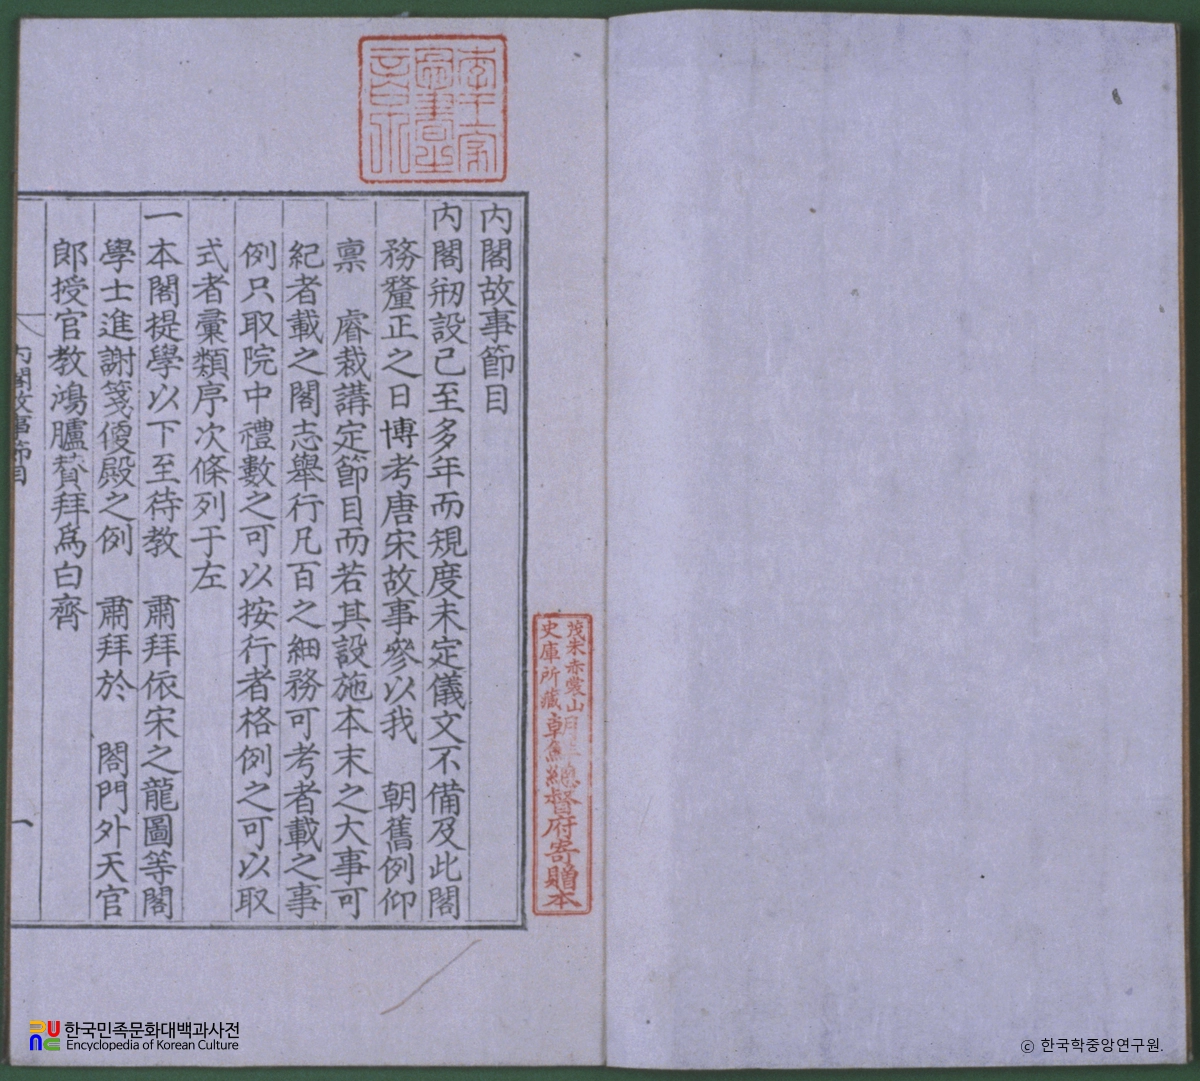 內閣故事節目
內閣刱設已至多年而規度未定儀文不備及此閣
務釐正之日博考唐宋故事參以我 朝舊例仰
禀 睿裁講定節目而若其設施本末之大事可
紀者載之閣志舉行凡百之細務可考者載之事
例只取院中禮數之可以按行者格例之可以取
式者彙類序次條列于左
一本閣提學以下至待教 肅拜依宋之龍圖等閣
學士進謝箋便殿之例 肅拜於 閤門外天官
郎授官教鴻臚賛拜爲白齊
內閣故事節目
一
李王家圖書之章
茂朱赤裳山
史庫所藏朝鮮總督府寄贈本
한국민족문화대백과사전
Encyclopedia of Korean Culture
ⓒ 한국학중앙연구원.